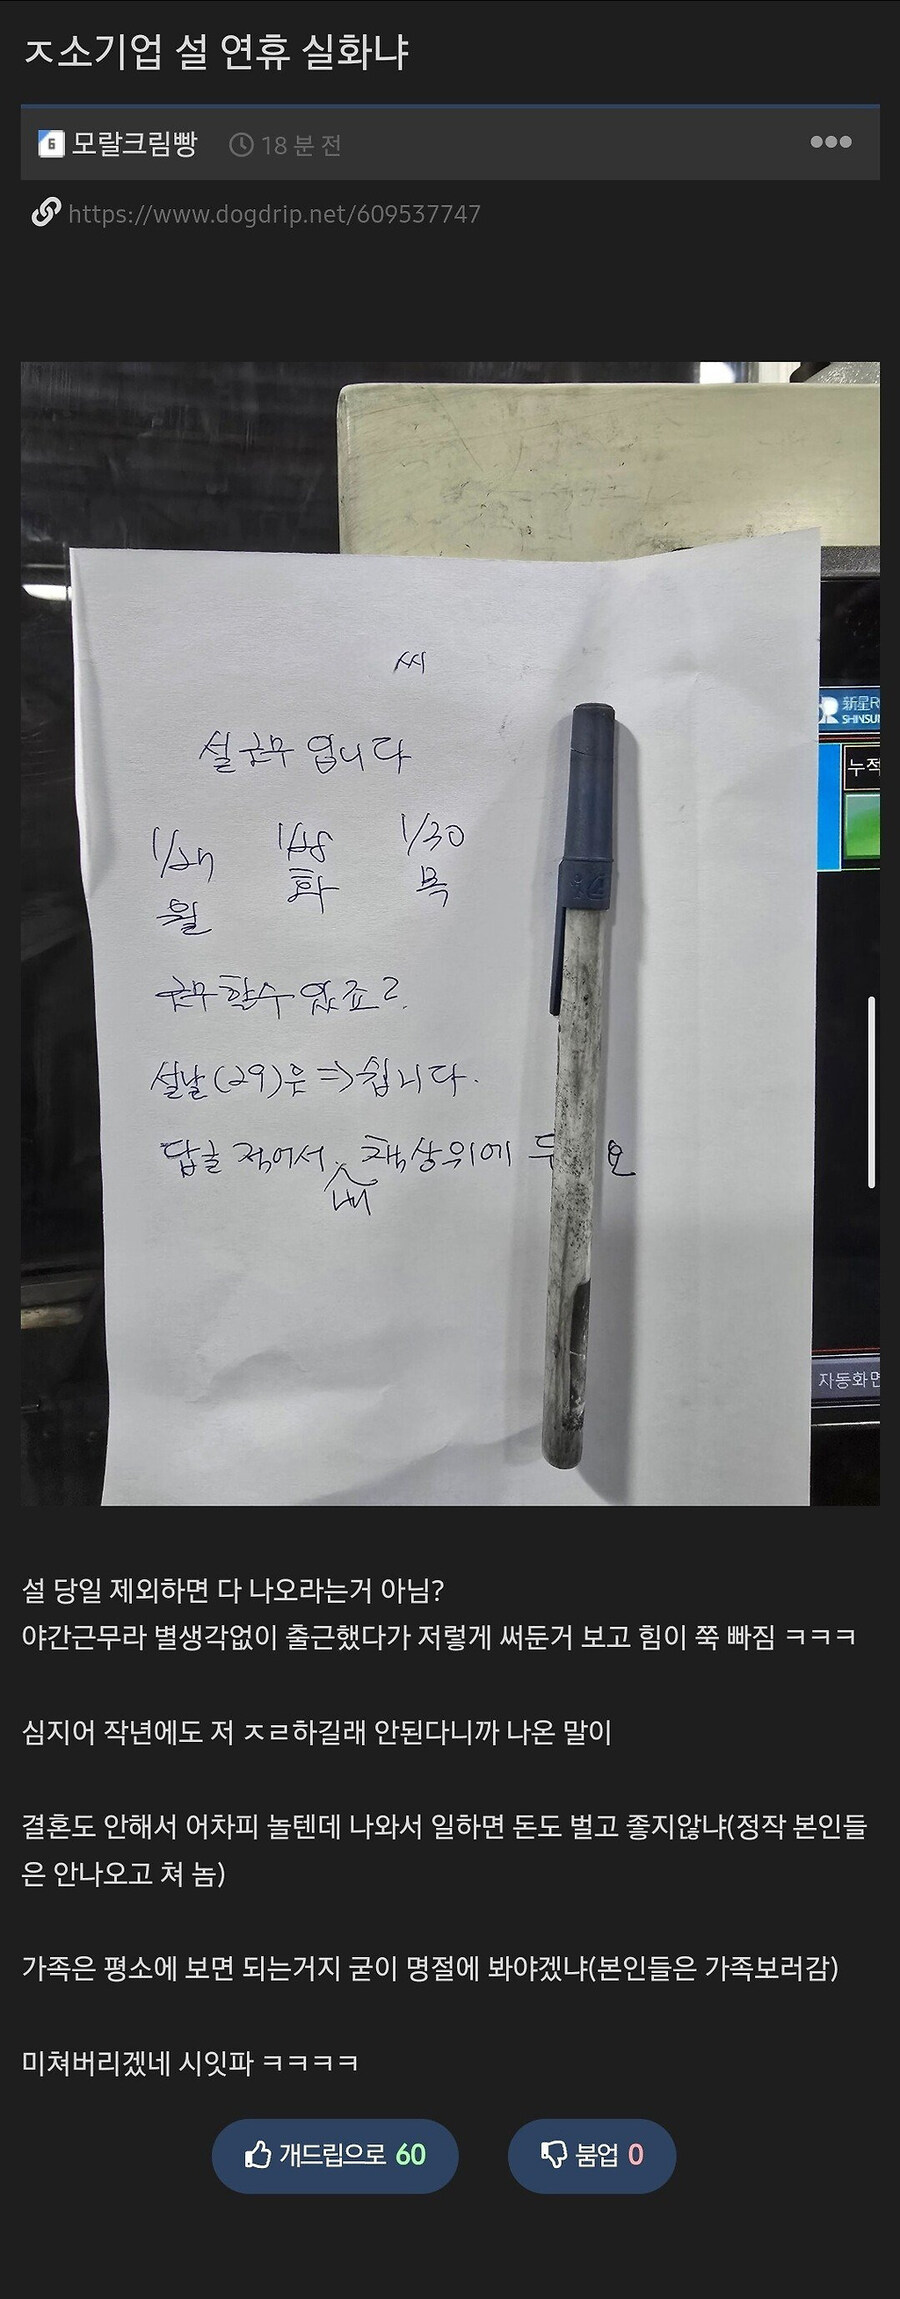 ㅈ소기업 설 연휴 실화냐
모랄크림빵 18 분 전
https://www.dogdrip.net/609537747
씨
설 근무 입니다
1/27 1/28 1/30
월 화 목
근무 할수 있죠?
설날(29)은 ⇒ 쉽니다.
답글 적어서 내 책상위에 두 요
新星
SHINSU
누적
자동화면
설 당일 제외하면 다 나오라는거 아님?
야간근무라 별생각없이 출근했다가 저렇게 써둔거 보고 힘이 쭉 빠짐 ㅋㅋㅋ
심지어 작년에도 저 ㅈㄹ하길래 안된다니까 나온 말이
결혼도 안해서 어차피 놀텐데 나와서 일하면 돈도 벌고 좋지않냐(정작 본인들
은 안나오고 쳐 놈)
가족은 평소에 보면 되는거지 굳이 명절에 봐야겠냐(본인들은 가족보러감)
미쳐버리겠네 시잇파 ㅋㅋㅋㅋ
개드립으로 60 붐업 0